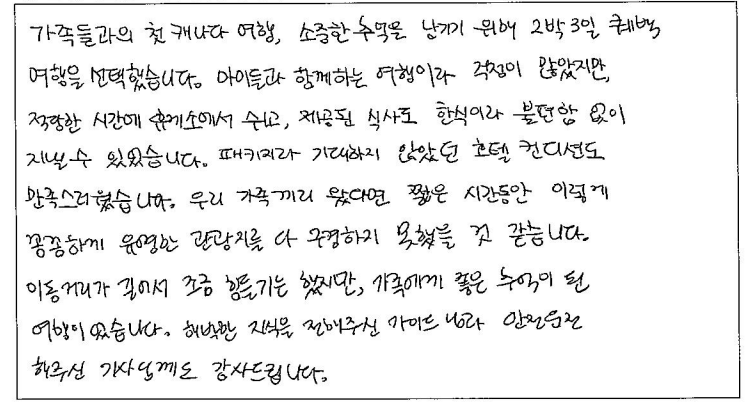 가족들과의 첫 캐나다 여행, 소중한 추억을 남기기 위해 2박 3일 퀘벡
여행을 선택했습니다. 아이들과 함께하는 여행이라 걱정이 많았지만,
적당한 시간에 휴게소에서 쉬고, 제공된 식사도 한식이라 불편함 없이
지낼 수 있었습니다. 패키지라 기대하지 않았던 호텔 컨디션도
만족스러웠습니다. 우리 가족끼리 왔다면 짧은 시간동안 이렇게
꼼꼼하게 유명한 관광지를 다 구경하지 못했을 것 같습니다.
이동거리가 길어서 조금 힘들기는 했지만, 가족에게 좋은 추억이 된
여행이었습니다. 해박한 지식을 전해주신 가이드님과 안전운전
해주신 기사님께도 감사드립니다.